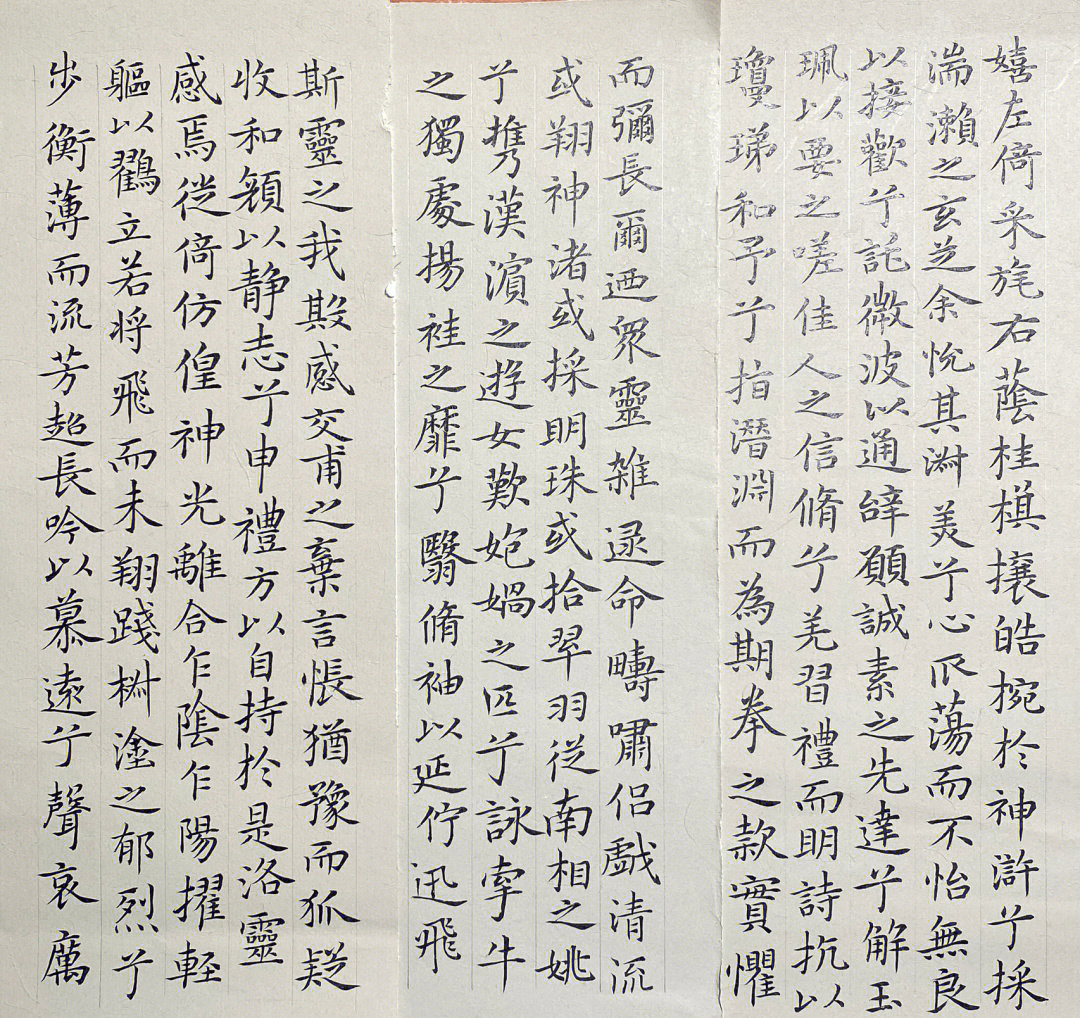 嬉左倚采旄右蔭桂棋攘皓捥於神滸兮採
湍瀨之玄芝余悅其淑美兮心𠂢蕩而不怡無良
以接歡兮託微波以通辝願誠素之先達兮解玉
珮以要之嗟佳人之信脩兮羌習禮而明詩抗以
瓊珶和予兮指潛淵而為期拳之款實懼
而彌長爾迺眾靈雜遝命疇嘯侶戲清流
或翔神渚或採明珠或拾翠羽從南相之姚
兮攜漢濱之遊女歎匏媧之匹兮詠牽牛
之獨處揚袿之靡兮翳脩袖以延佇迅飛
斯靈之我欺感交甫之棄言悵猶豫而狐疑
收和顏以靜志兮申禮方以自持於是洛靈
感焉徙倚仿偟神光離合乍陰乍陽擢軽
軀以鸛立若将飛而未翔踐椒塗之郁烈兮
步衡薄而流芳超長吟以慕遠兮聲哀厲